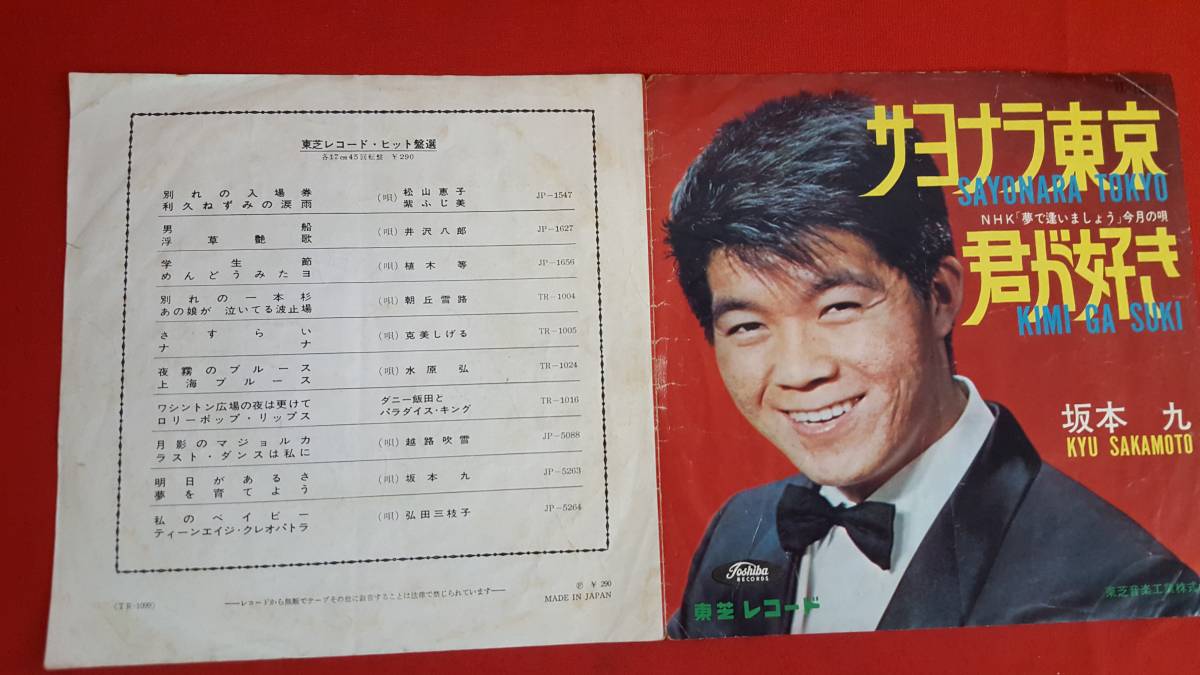 東芝レコード・ヒット盤選
各17cm45回転盤 ¥290
別れの入場券
利久ねずみの涙雨
(唄) 松山恵子
紫ふじ美
JP-1547
男船
浮草艶歌
(唄) 井沢八郎
JP-1627
学生節
めんどうみたヨ
(唄) 植木等
JP-1656
別れの一本杉
あの娘が 泣いてる波止場
(唄) 朝丘雪路
TR-1004
さすらい
ナナ
(唄) 克美しげる
TR-1005
夜霧のブルース
上海ブルース
(唄) 水原弘
TR-1024
ワシントン広場の夜は更けて
ロリーポップ・リップス
ダニー飯田と
パラダイス・キング
TR-1016
月影のマジョルカ
ラスト・ダンスは私に
(唄) 越路吹雪
JP-5088
明日があるさ
夢を育てよう
(唄) 坂本九
JP-5263
私のベイビー
ティーンエイジ・クレオパトラ
(唄) 弘田三枝子
JP-5264
(TR-1099)
——レコードから無断でテープその他に録音することは法律で禁じられています——
Ⓟ ¥ 290
MADE IN JAPAN
サヨナラ東京
SAYONARA TOKYO
NHK「夢で逢いましょう」今月の唄
君が好き
KIMI GA SUKI
坂本 九
KYU SAKAMOTO
Toshiba
RECORDS
東芝レコード
東芝音楽工業株式